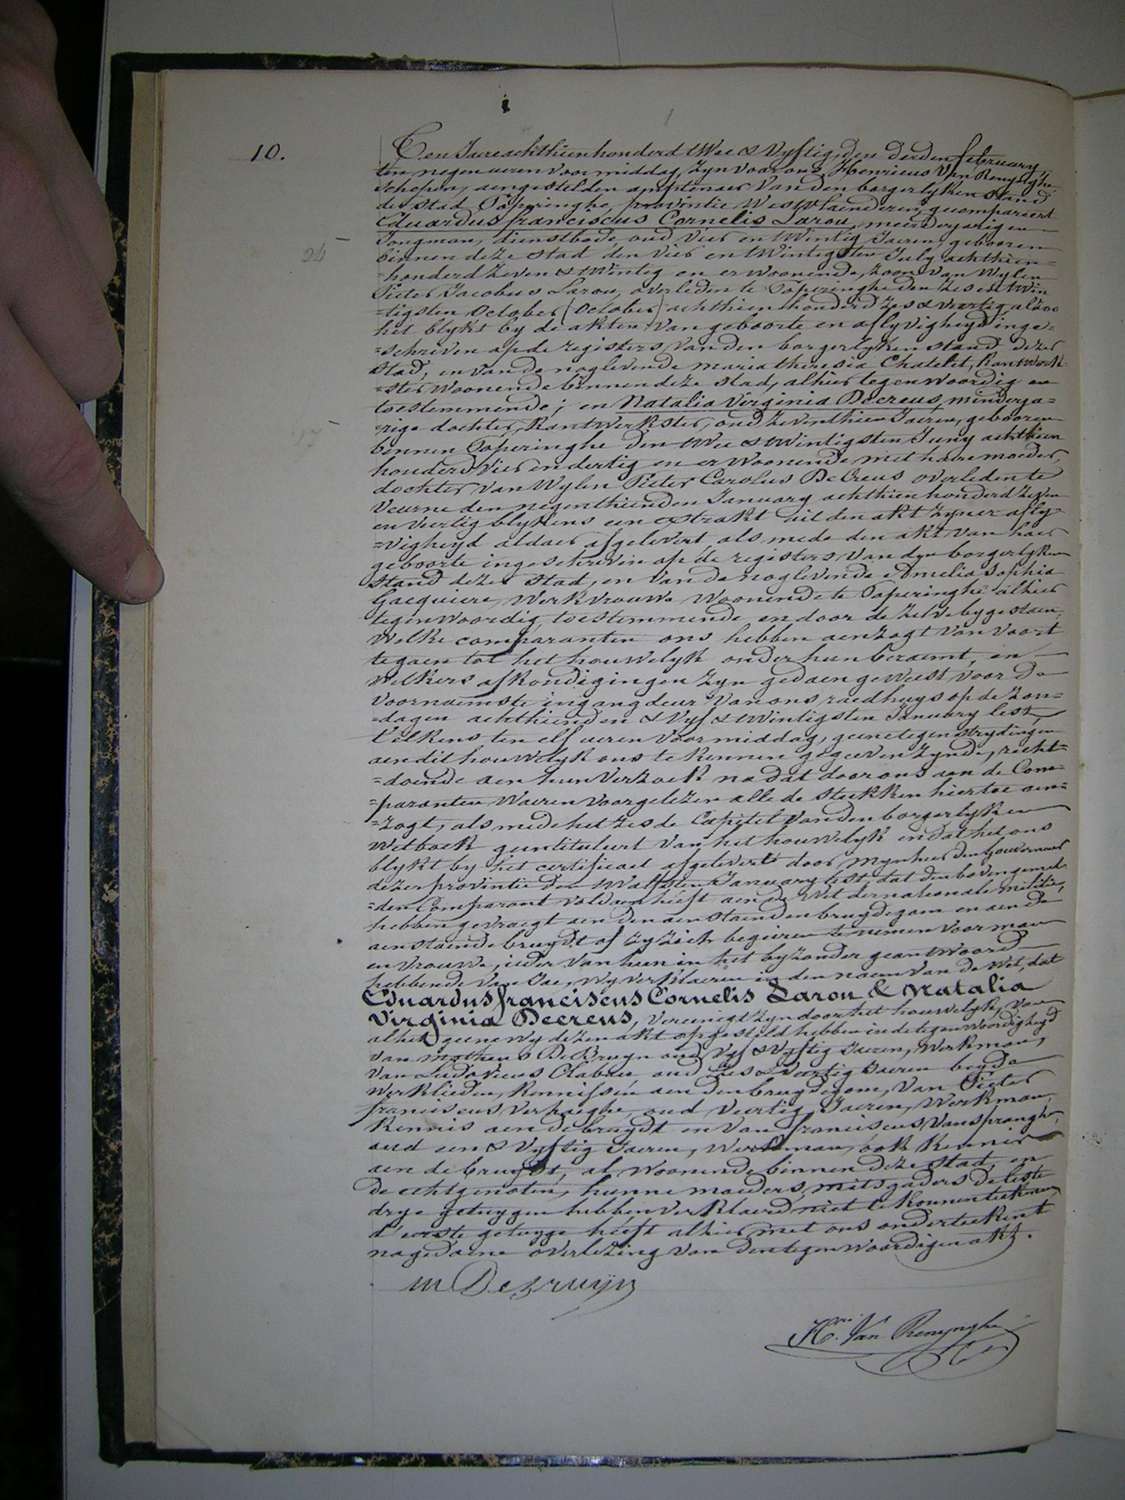 10.
Een Jaere achthien honderd twee & vyftig, den derden february
ten negen ueren voor middag, zyn voor ons, Henricus Van Renynghe
Schepen, aengestelden amptenaer van den borgerlyken stand
der stad Poperinghe, provintie Westvlaenderen, gecompareert
Eduardus franciscus Cornelis Larou, meerderjarigen
Jongman, dienstbode, oud vier en twintig Jaeren, geboren
24
binnen deze stad den vier en twintigsten July achthien
=honderd zeven & twintig en er woonende, zoon van wylen
Pieter Jacobus Larou, overleden te Poperinghe den zes en twin
=tigsten October (October) achthien honderd zes & veertig, alzoo
het blykt by de akten van geboorte en aflyvigheyd inge=
=schreven op de registers van den borgerlyken stand dezer
stad, en van de nogelevende maria theresia Chatelet, Kantwerk=
=ster woonende binnen deze stad, alhier tegenwoordig en
toestemmende; en Natalia Virginia Decreus, minderja=
=rige dochter, Kantwerkster, oud zeventhien Jaeren, geboren
17
binnen Poperinghe den twee & twintigsten Juny achthien
honderd vier en dertig en er woonende met haere moeder,
dochter van wylen Pieter Carolus DeCreus overleden te
Veurne den negenthienden January achthien honderd zeven
en veertig blykens een extrakt uit den akt zyner afly=
=vigheyd aldaer afgelevert als mede den akt van haer
geboorte ingeschreven op de registers van den borgerlyken
stand dezer stad, en van de noglevende Amelia Sophia
Gacquiere, Werkvrouwe woonende te Poperinghe alhier
tegenwoordig toestemmende en door de zelve bygestaen,
welke comparanten ons hebben aenzogt van voort
te gaen tot het houwelyk onder hun beraemt, en
welkers afkondigingen zyn gedaen geweest voor de
voornaemste ingang deur van ons raedhuys op de zon=
=dagen achthienden & vyf & twintigsten January lest,
telkens ten elf ueren voor middag, geene tegenstrydingen
aen dit houwelyk ons te kennen gegeven zynde, recht=
=doende aen hun verzoek na dat door ons aen de Com=
=paranten waeren voorgelezen alle de stukken hiertoe aen=
=zogt, als mede het zesde Capittel van den borgerlyken
wetboek geintituleert van het houwelyk en dat het ons
blykt by het certificaet afgelevert door Mynheer den Gouverneur
dezer provintie den January lest, dat den bovengemel=
=den Comparant voldaen heeft aen de Wet der nationale militie,
hebben gevraegt aen den aenstaenden bruydegom en aen de
aenstaende bruydt of zy zich begeeren te nemen voor man
en vrouwe, ieder van hun in het byzonder geantwoord
hebbende van Jae, wy verklaeren in den naem van de wet, dat
Eduardus franciscus Cornelis Larou & Natalia
Virginia Decreus, vereenigt zyn door het houwelyk, van
al het geene wy dezen akt opgesteld hebben in de tegenwoordigheyd
van DeBruyn oud vyf & vyftig Jaeren, werkman,
van Ludovicus oud zes & veertig Jaeren beyde
werklieden, Kennissen aen den bruydegom, van Pieter
franciscus Verhaeghe, oud veertig Jaeren, werkman,
Kennis aen de bruydt en van franciscus
oud een & vyftig Jaeren, werkman, ook Kennis
aen de bruydt, al woonende binnen deze stad, en
de echtgenoten, hunne moeders, mitsgaders de leste
drye getuygen hebben verklaerd niet te konnen teekenen
d'eerste getuyge heeft alhier met ons onderteekent
nagedaene overlezing van den tegenwoordigen akt.
m DeBruijn
Hri. Van Renynghe